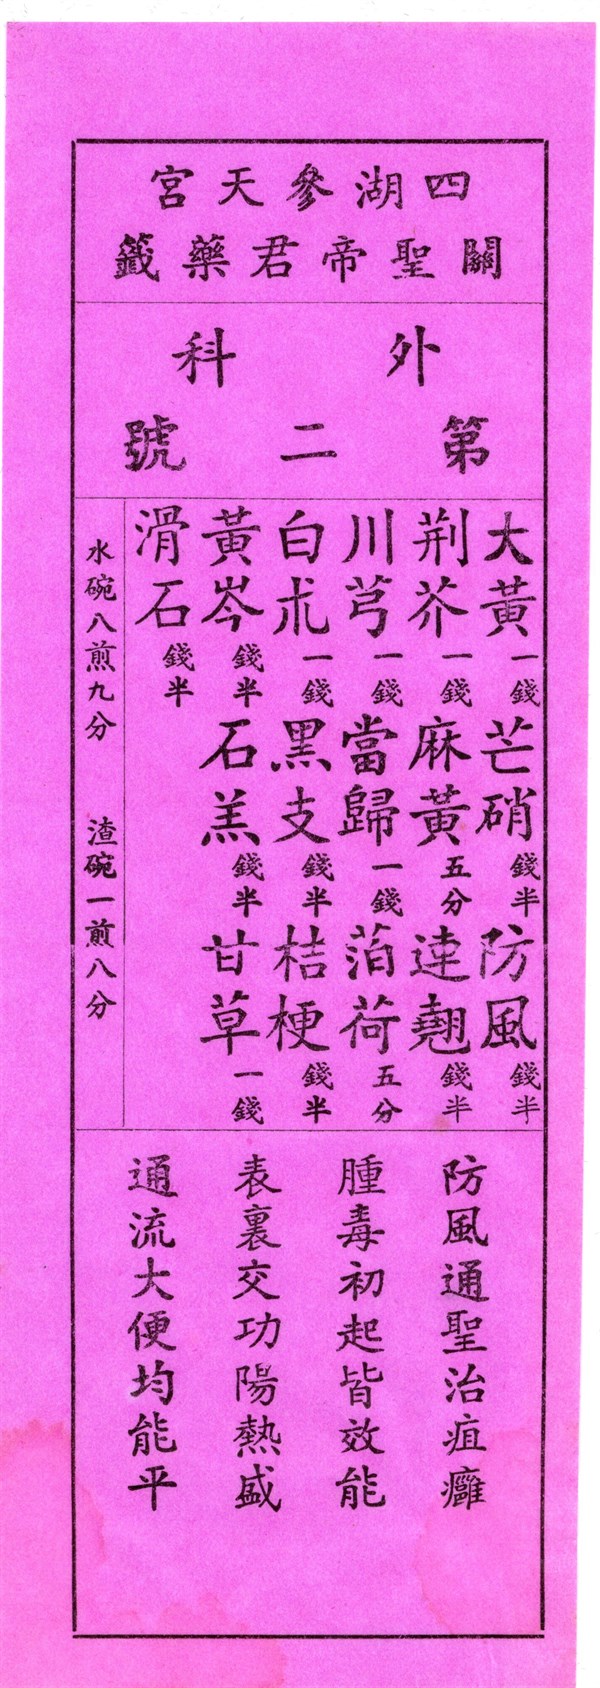 四湖參天宮
關聖帝君藥籤
外科
第二號
大黃一錢 芒硝錢半 防風錢半
荆芥一錢 麻黃五分 連翹錢半
川芎一錢 當歸一錢 萡荷五分
白朮一錢 黑支錢半 桔梗錢半
黃岑錢半 石羔錢半 甘草一錢
滑石錢半
水碗八煎九分 渣碗一煎八分
防風通聖治疽癰
腫毒初起皆效能
表裏交功陽熱盛
通流大便均能平